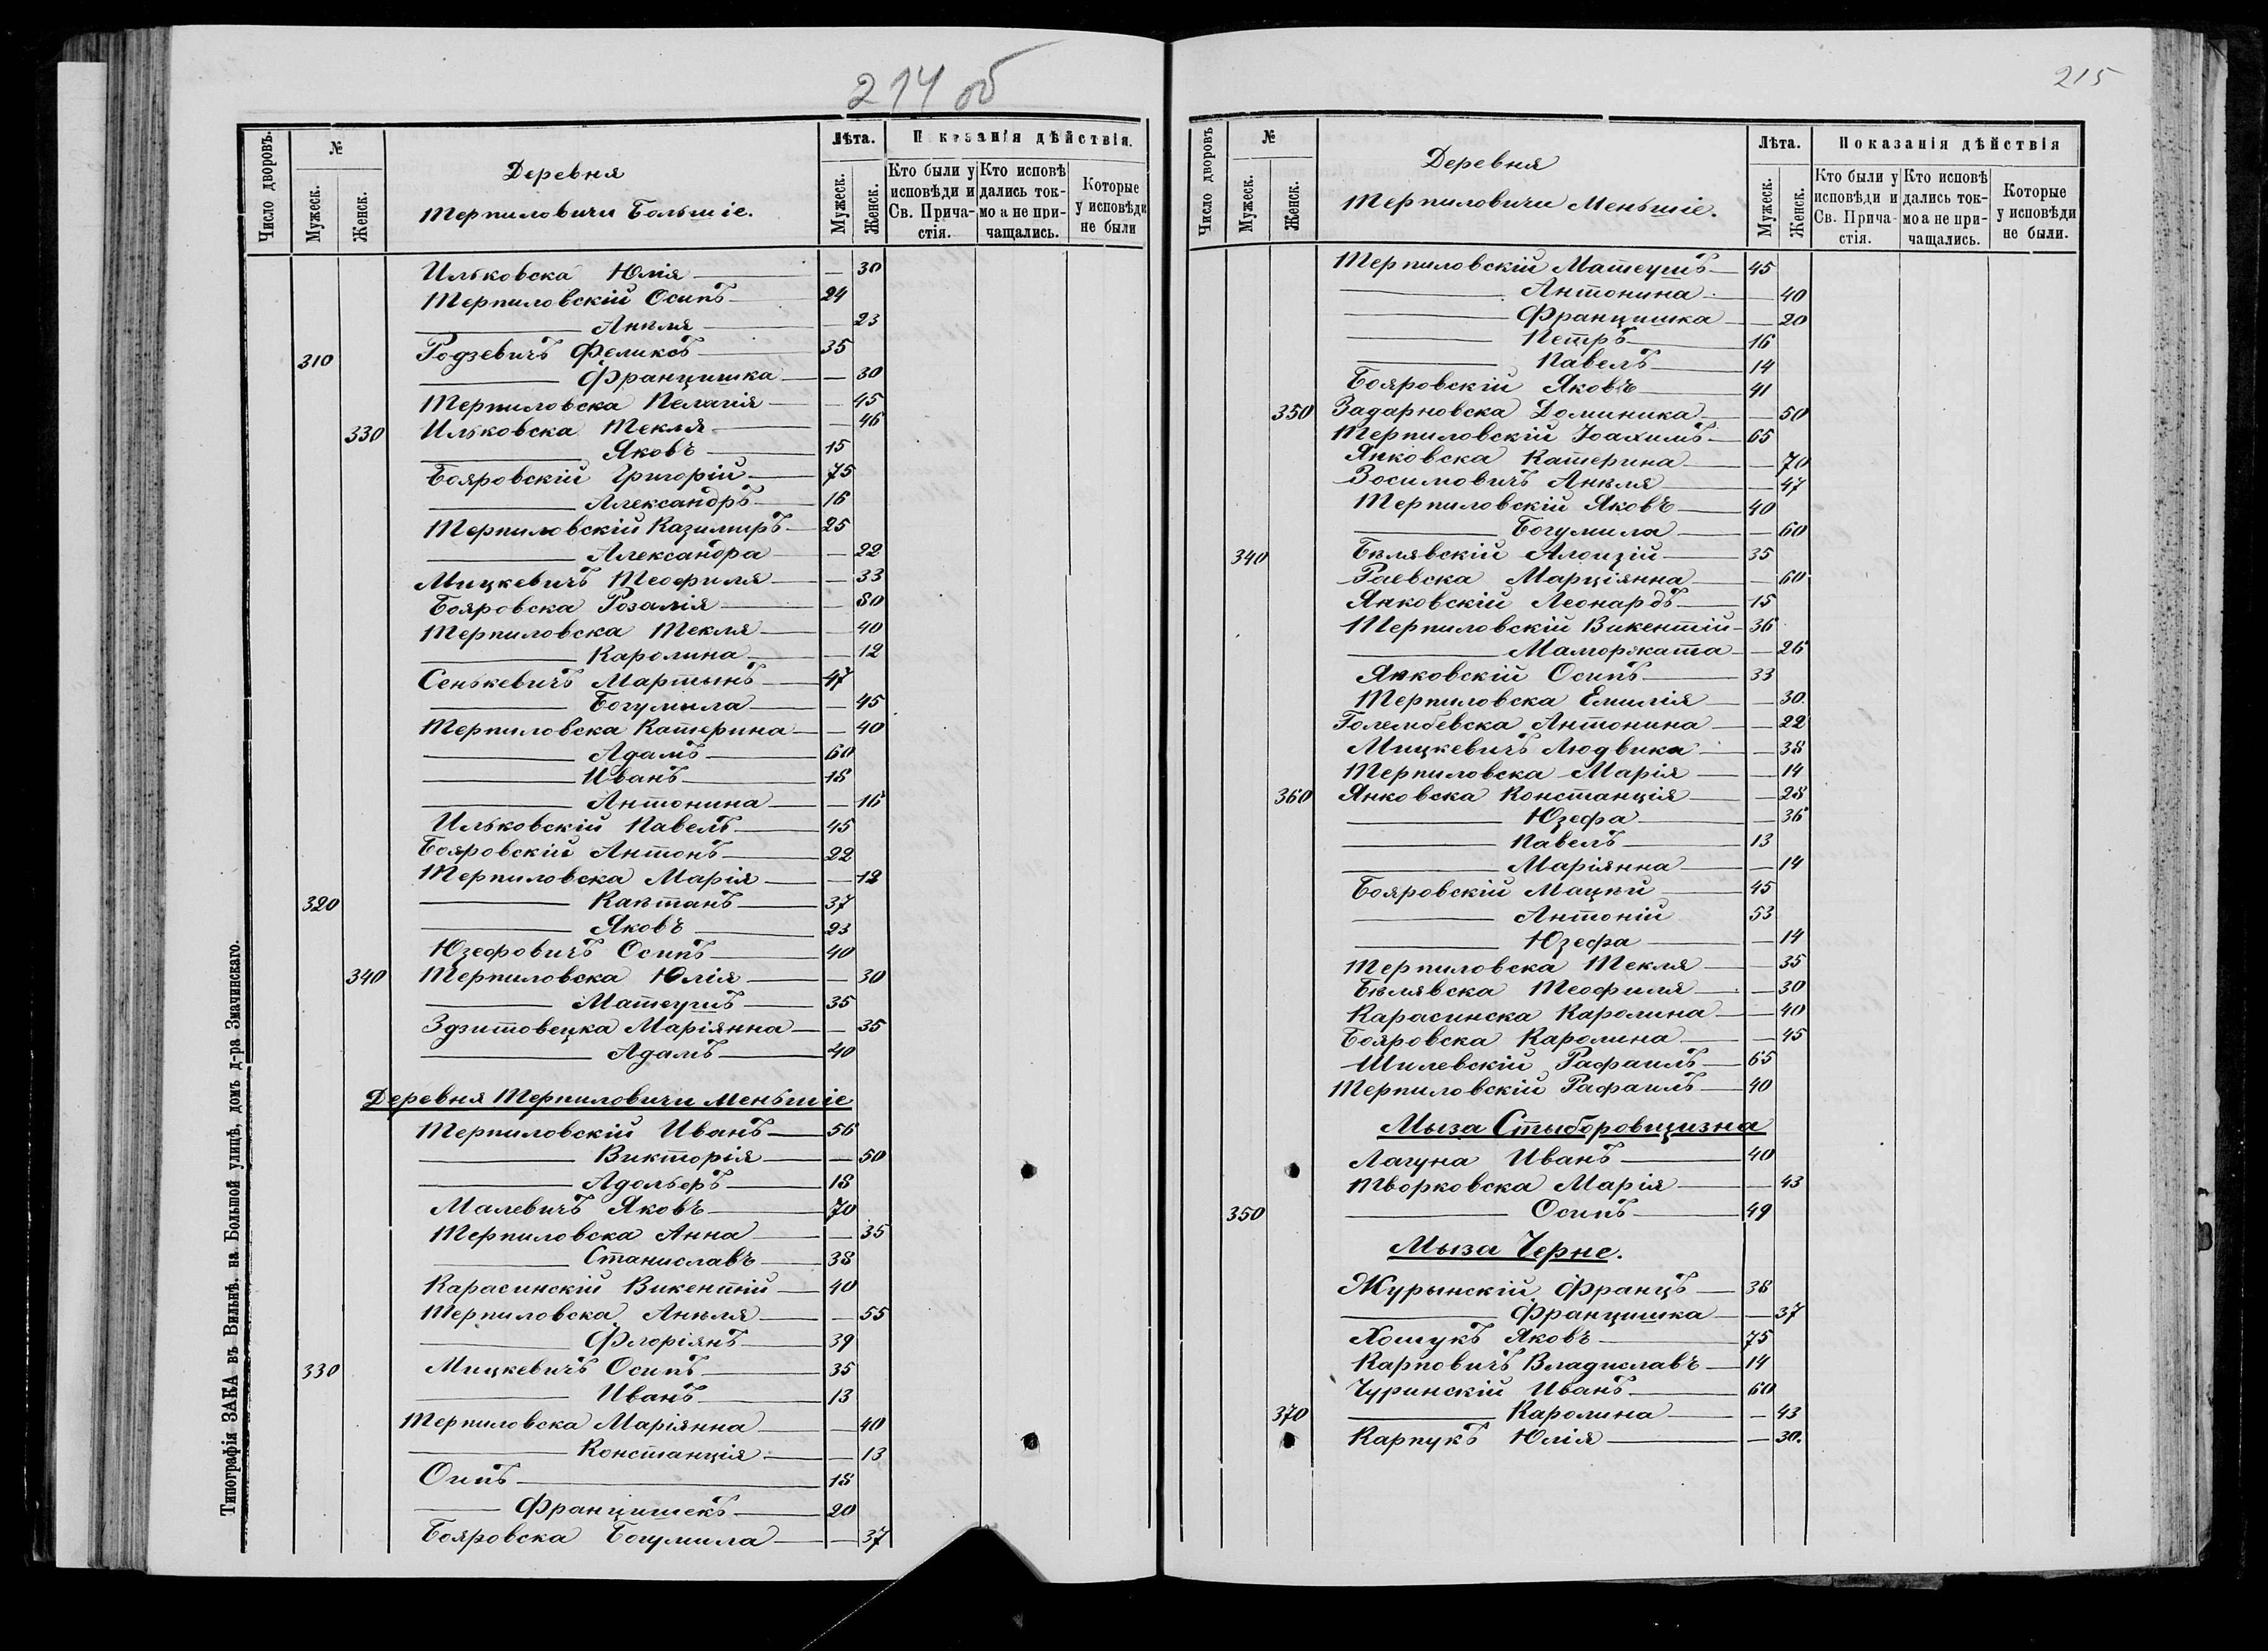 214 об
Число дворовъ.
№
Мужеск.
Женск.
Деревня
Терпиловичи Большіе.
Лѣта.
Мужеск.
Женск.
Показанія дѣйствія.
Кто были у исповѣди и Св. Причастія.
Кто исповѣдались токмо а не причащались.
Которые у исповѣди не были
Ильковска Юлія — 30
Терпиловскій Осипъ 24
Анеля — 23
310 Родзевичъ Феликсъ 35
Францишка — 30
Терпиловска Пелагія — 45
330 Ильковска Текля — 46
Яковъ 15
Бояровскій Григорій 75
Александръ 16
Терпиловскій Казимиръ 25
Александра — 22
Мицкевичъ Теофиля — 33
Бояровска Розалія — 80
Терпиловска Текля — 40
Каролина — 12
Сенькевичъ Мартынъ 47
Богумила — 45
Терпиловска Катерина — 40
Адамъ 60
Иванъ 18
Антонина — 16
Ильковскій Павелъ 45
Бояровскій Антонъ 22
Терпиловска Марія — 12
320 Каетанъ 37
Яковъ 23
Юзефовичъ Осипъ 40
340 Терпиловска Юлія — 30
Матеушъ 35
Здзитовецка Маріянна — 35
Адамъ 40
Деревня Терпиловичи Меньшіе
Терпиловскій Иванъ 56
Викторія — 50
Адольфъ 18
Малевичъ Яковъ 70
Терпиловска Анна — 35
Станиславъ 38
Карасинскій Викентій 40
Терпиловска Анеля — 55
Флоріянъ 39
330 Мицкевичъ Осипъ 35
Иванъ 13
Терпиловска Маріянна — 40
Констанція — 13
Осипъ 18
Францишекъ 20
Бояровска Богумила — 37
Типографія ЗАКА въ Вильнѣ, на Большой улицѣ, домъ д-ра Змачинскаго.
215
Число дворовъ
№
Мужеск.
Женск.
Деревня
Терпиловичи Меньшіе.
Лѣта.
Мужеск.
Женск.
Показанія дѣйствія
Кто были у исповѣди и Св. Причастія.
Кто исповѣдались токмо а не причащались.
Которые у исповѣди не были.
Терпиловскій Матеушъ 45
Антонина — 40
Францишка — 20
Петръ 16
Павелъ 14
Бояровскій Яковъ 41
350 Задарновска Доминика — 50
Терпиловскій Іоахимъ 65
Янковска Катерина — 70
Зосимовичъ Анеля — 47
Терпиловскій Яковъ 40
Богумила — 60
340 Белявскій Алоизій 35
Раевска Марціянна — 60
Янковскій Леонардъ 15
Терпиловскій Викентій 36
Малгоржата — 26
Янковскій Осипъ 33
Терпиловска Емилія — 30.
Голембевска Антонина — 22
Мицкевичъ Людвика — 38
Терпиловска Марія — 14
360 Янковска Констанція — 28
Юзефа — 36
Павелъ 13
Маріянна — 14
Бояровскій Мацей 45
Антоній 53
Юзефа — 14
Терпиловска Текля — 35
Белявска Теофиля — 30
Карасинска Каролина — 40
Бояровска Каролина — 45
Шилевскій Рафаилъ 65
Терпиловскій Рафаилъ 40
Мыза Стыборовщизна
Лагуна Иванъ 40
Творковска Марія — 43
350 Осипъ 49
Мыза Черне.
Журынскій Францъ 38
Францишка — 37
Хомукъ Яковъ 75
Карповичъ Владиславъ 14
Чуринскій Иванъ 60
370 Каролина — 43
Карпукъ Юлія — 30.